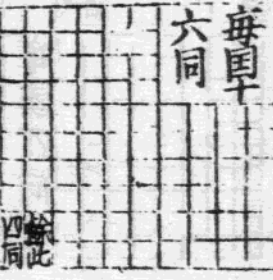 每囯十
六同
餘此
四同